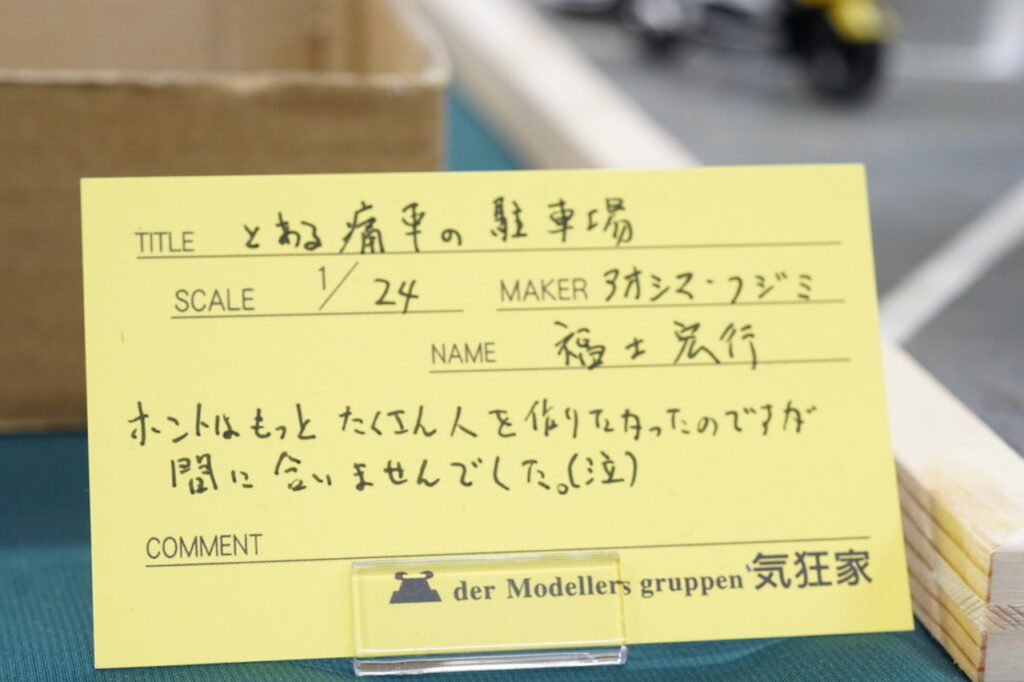 TITLE とある痛車の駐車場
SCALE 1/24 MAKER アオシマ・フジミ
NAME 福士宏行
ホントはもっと たくさん人を作りたかったのですが
間に合いませんでした。(泣)
COMMENT
der Modellers gruppen 気狂家